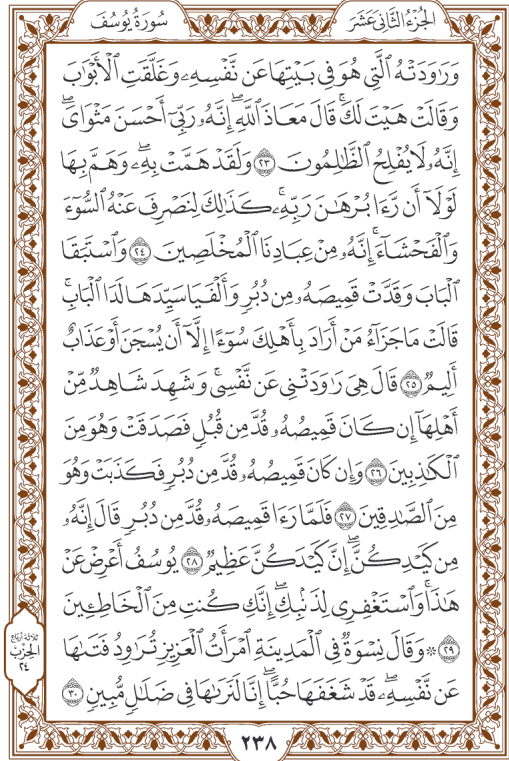 الجُزْءُ الثَّانِي عَشَرَ
سُورَةُ يُوسُفَ
وَرَٰوَدَتْهُ الَّتِي هُوَ فِي بَيْتِهَا عَن نَّفْسِهِۦ وَغَلَّقَتِ الْأَبْوَٰبَ
وَقَالَتْ هَيْتَ لَكَۚ قَالَ مَعَاذَ اللَّهِۖ إِنَّهُۥ رَبِّيٓ أَحْسَنَ مَثْوَايَۖ
إِنَّهُۥ لَا يُفْلِحُ الظَّٰلِمُونَ ٢٣ وَلَقَدْ هَمَّتْ بِهِۦۖ وَهَمَّ بِهَا
لَوْلَآ أَن رَّءَا بُرْهَٰنَ رَبِّهِۦۚ كَذَٰلِكَ لِنَصْرِفَ عَنْهُ السُّوٓءَ
وَالْفَحْشَآءَۚ إِنَّهُۥ مِنْ عِبَادِنَا الْمُخْلَصِينَ ٢٤ وَاسْتَبَقَا
الْبَابَ وَقَدَّتْ قَمِيصَهُۥ مِن دُبُرٍ وَأَلْفَيَا سَيِّدَهَا لَدَا الْبَابِۚ
قَالَتْ مَا جَزَآءُ مَنْ أَرَادَ بِأَهْلِكَ سُوٓءًا إِلَّآ أَن يُسْجَنَ أَوْ عَذَابٌ
أَلِيمٌ ٢٥ قَالَ هِيَ رَٰوَدَتْنِي عَن نَّفْسِيۚ وَشَهِدَ شَاهِدٌ مِّنْ
أَهْلِهَآ إِن كَانَ قَمِيصُهُۥ قُدَّ مِن قُبُلٍ فَصَدَقَتْ وَهُوَ مِنَ
الْكَٰذِبِينَ ٢٦ وَإِن كَانَ قَمِيصُهُۥ قُدَّ مِن دُبُرٍ فَكَذَبَتْ وَهُوَ
مِنَ الصَّٰدِقِينَ ٢٧ فَلَمَّا رَءَا قَمِيصَهُۥ قُدَّ مِن دُبُرٍ قَالَ إِنَّهُۥ
مِن كَيْدِكُنَّۖ إِنَّ كَيْدَكُنَّ عَظِيمٌ ٢٨ يُوسُفُ أَعْرِضْ عَنْ
هَٰذَاۚ وَاسْتَغْفِرِي لِذَنۢبِكِۖ إِنَّكِ كُنتِ مِنَ الْخَاطِـِٔينَ
٢٩ ۞ وَقَالَ نِسْوَةٌ فِي الْمَدِينَةِ امْرَأَتُ الْعَزِيزِ تُرَٰوِدُ فَتَىٰهَا
عَن نَّفْسِهِۦۖ قَدْ شَغَفَهَا حُبًّاۖ إِنَّا لَنَرَىٰهَا فِي ضَلَٰلٍ مُّبِينٍ ٣٠
ثلاثة أرباع
الحِزْب
٢٤
٢٣٨